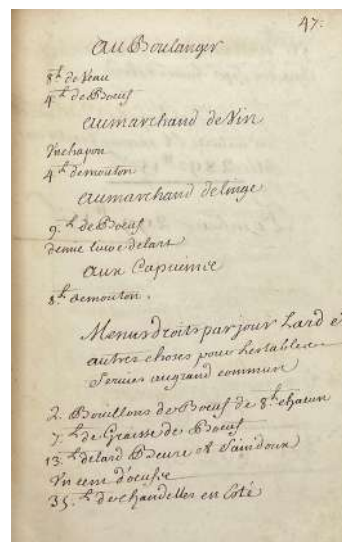 47.
au Boulanger
8.^lt de Veau
4.^lt de Boeuf
au marchand de Vin
Un chapon
4.^lt de mouton
au marchand de linge
9.^lt de Boeuf
demie livre de lart
aux Capucins
8.^lt de mouton.
Menus droits par jour Lard et
autres choses pour les tables
servies au grand commun
2. Bouillons de Boeuf de 8.^lt chacun
7.^lt de Graisse de Boeuf
13.^lt de lard Beure et Saindoux
Un cent d'oeufs
35.^lt de chandelles en Esté